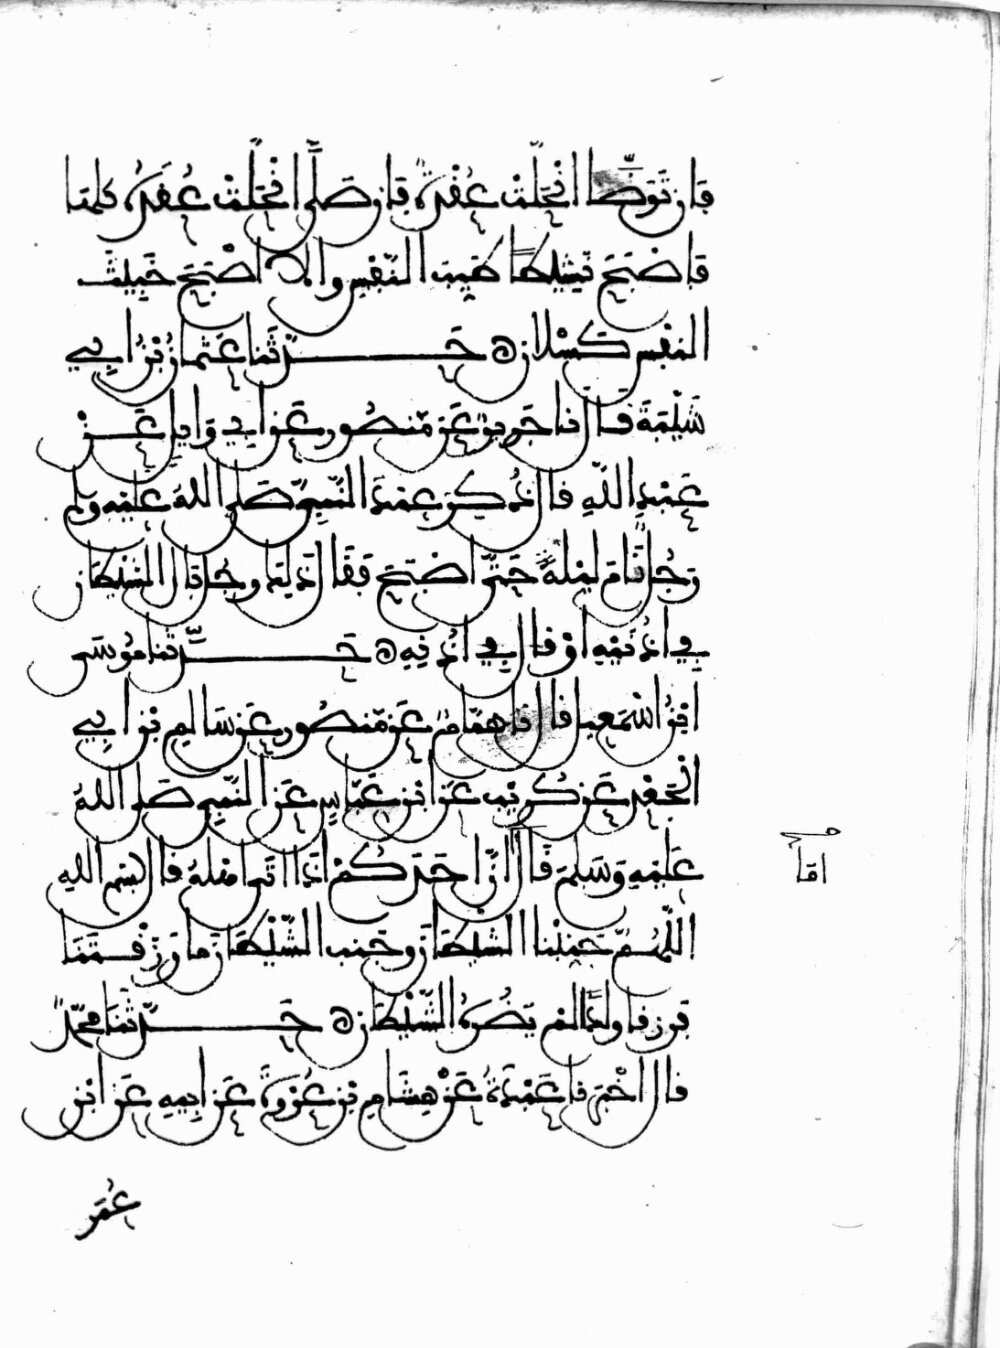 فإن توضأ انحلت عقدة فإن صلى انحلت عقده كلها
فأصبح نشيطا طيب النفس وإلا أصبح خبيث
النفس كسلان ه حدثنا عثمان بن أبي
شيبة قال نا جرير عن منصور عن أبي وايل عن
عبد الله قال ذكر عند النبي صلى الله عليه وسلم
رجل نام ليلة حتى أصبح فقال ذلك رجل بال الشيطان
في أذنيه أو قال في أذنه ه حدثنا موسى
ابن اسمعيل قال نا همام عن منصور عن سالم بن أبي
الجعد عن كريب عن ابن عباس عن النبي صلى الله
عليه وسلم قال إن أحدكم إذا أتى أهله قال بسم الله
اللهم جنبنا الشيطان وجنب الشيطان ما رزقتنا
فرزقا ولدا لم يضره الشيطان ه حدثنا محمد
قال أخبرنا عبدة عن هشام بن عروة عن أبيه عن ابن
عمر